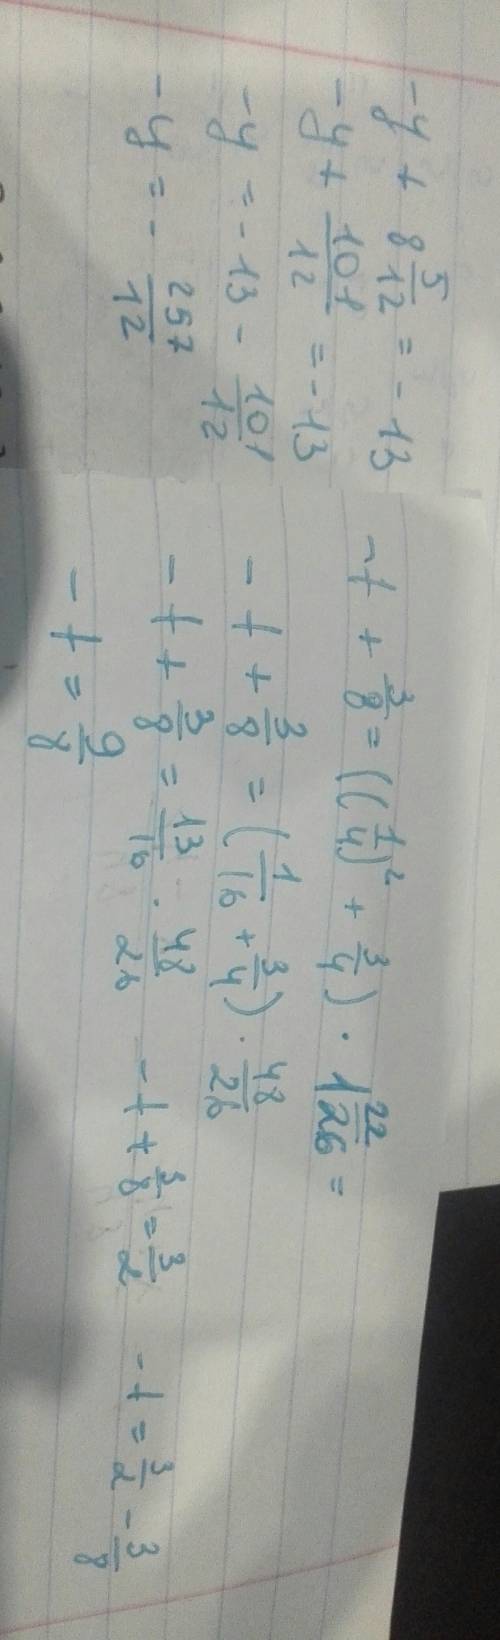 -y + 8 5/12 = -13
-y + 101/12 = -13
-y = -13 - 101/12
-y = - 257/12
-t + 3/8 = ((1/4)² + 3/4) · 1 22/26 =
-t + 3/8 = (1/16 + 3/4) · 48/26
-t + 3/8 = 13/16 · 48/26 -t + 3/8 = 3/2 -t = 3/2 - 3/8
-t = 9/8